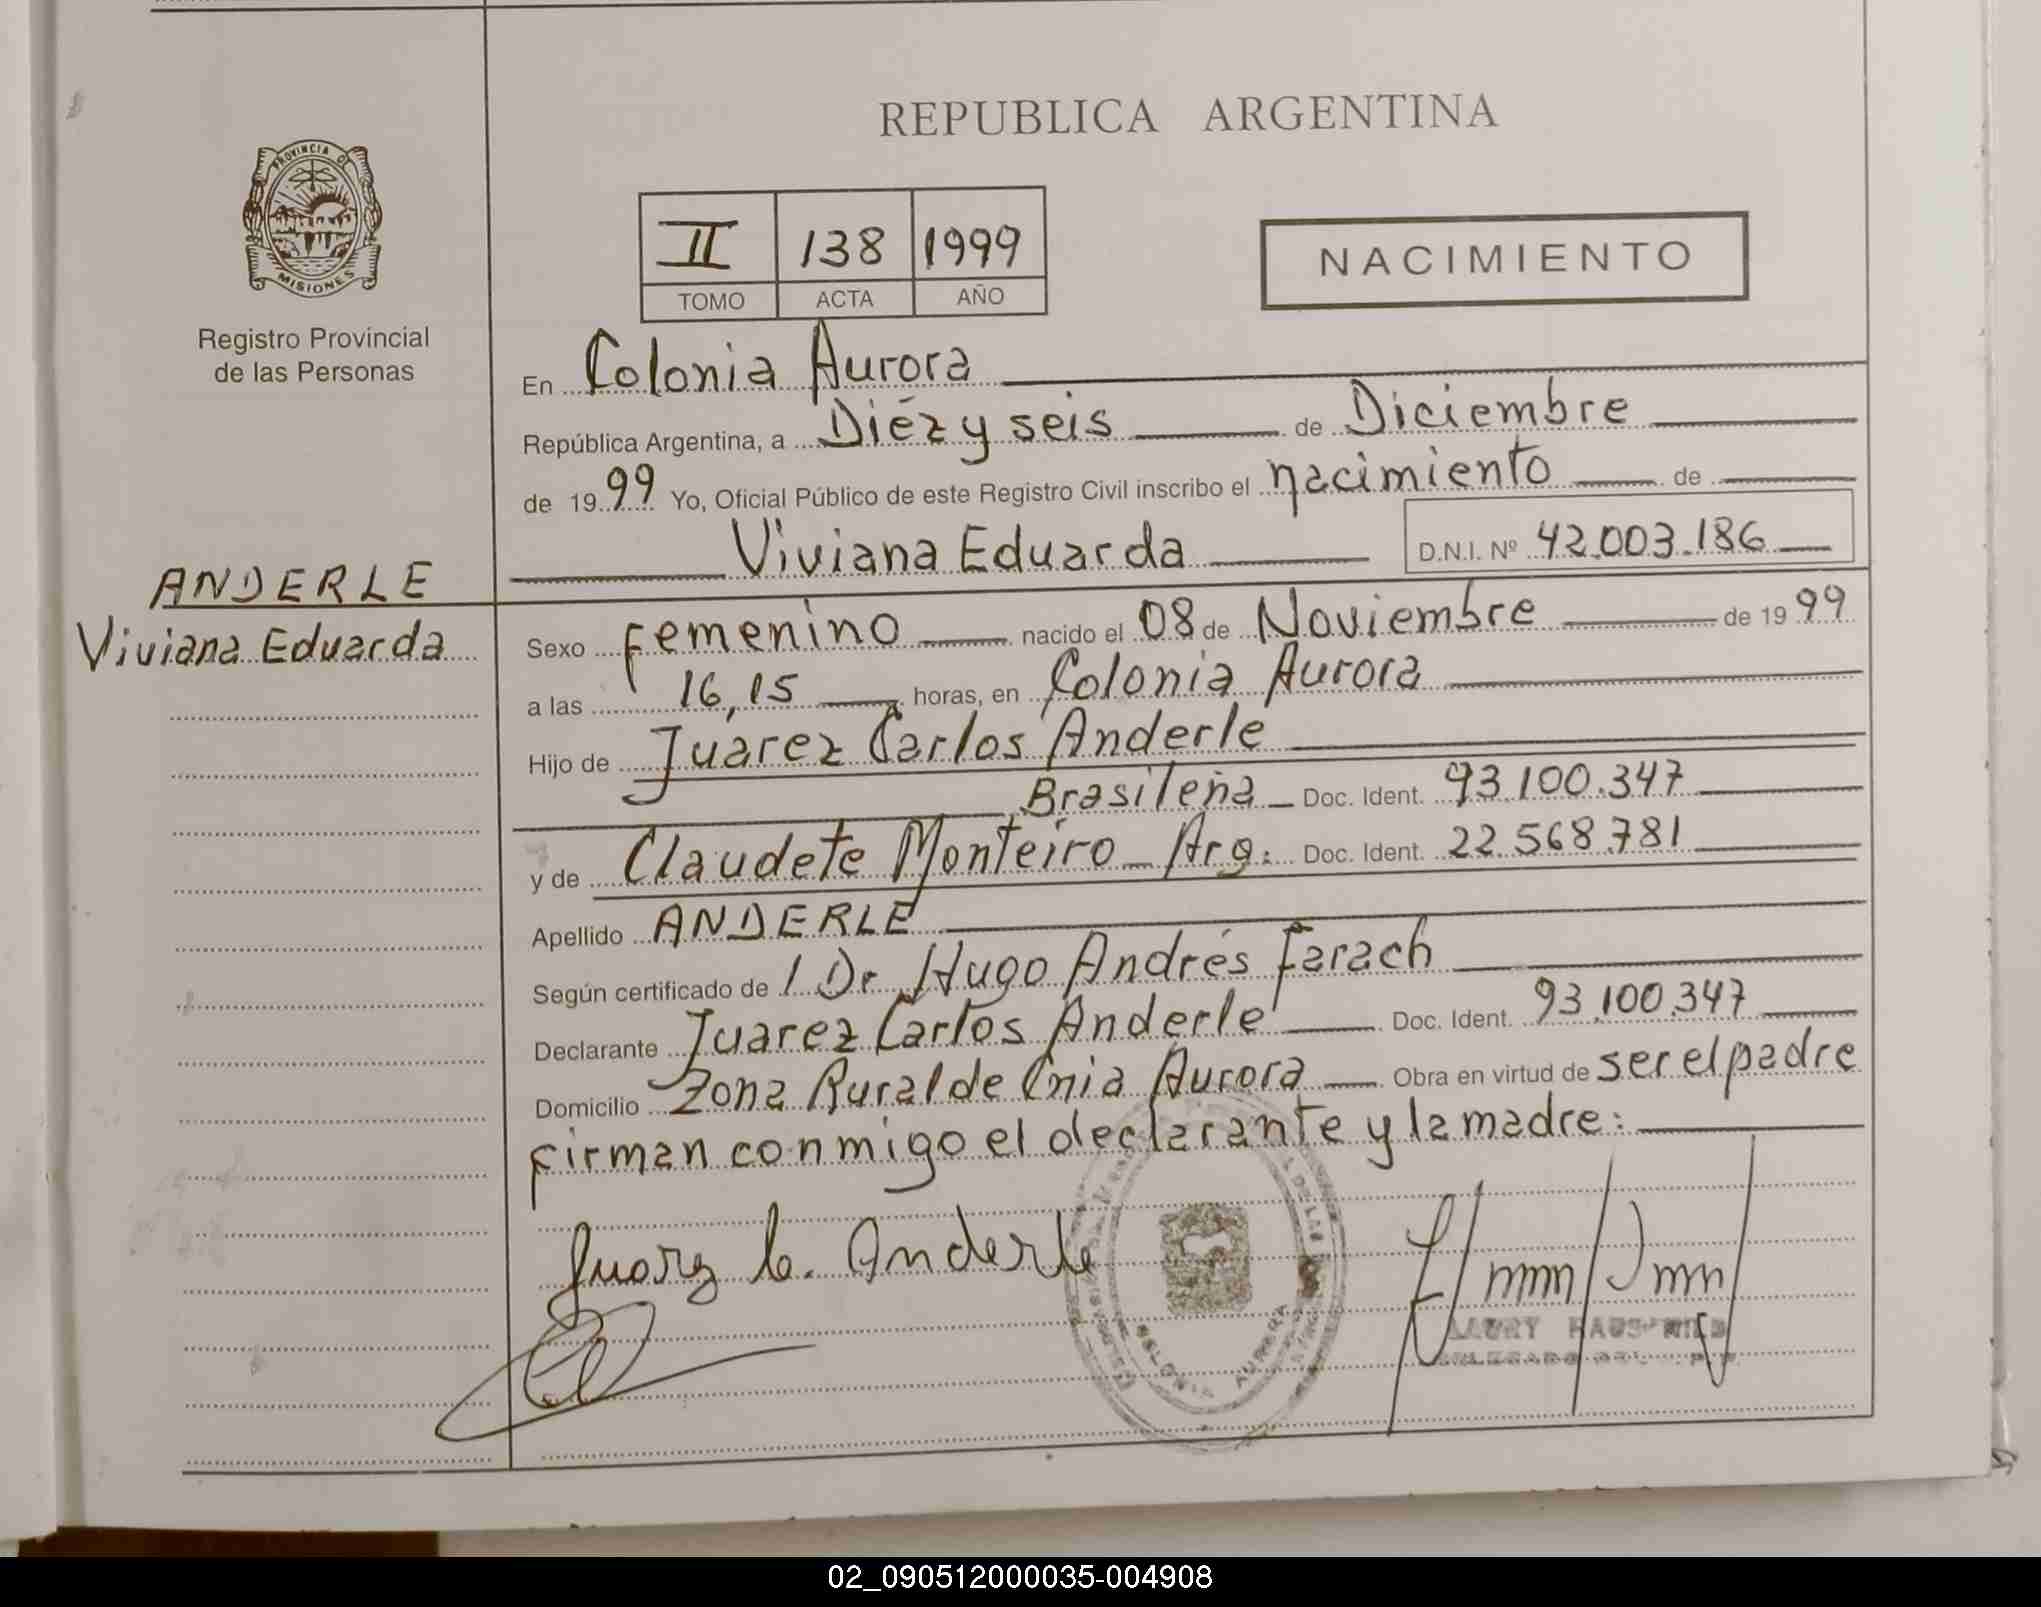 REPUBLICA ARGENTINA
PROVINCIA DE
MISIONES
Registro Provincial
de las Personas
II 138 1999
TOMO ACTA AÑO
NACIMIENTO
En Colonia Aurora
República Argentina, a Diéz y seis de Diciembre
de 1999 Yo, Oficial Público de este Registro Civil inscribo el nacimiento de
Viviana Eduarda D.N.I. Nº 42.003.186
ANDERLE
Viviana Eduarda
Sexo Femenino nacido el 08 de Noviembre de 1999
a las 16,15 horas, en Colonia Aurora
Hijo de Juarez Carlos Anderle
Brasileña Doc. Ident. 93.100.347
y de Claudete Monteiro Arg. Doc. Ident. 22.568.781
Apellido ANDERLE
Según certificado de / Dr. Hugo Andrés Farach
Declarante Juarez Carlos Anderle Doc. Ident. 93.100.347
Domicilio Zona Rural de Cnia Aurora Obra en virtud de ser el padre
firman conmigo el declarante y la madre:
Juarez C. Anderle
COLONIA AURORA
02_090512000035-004908